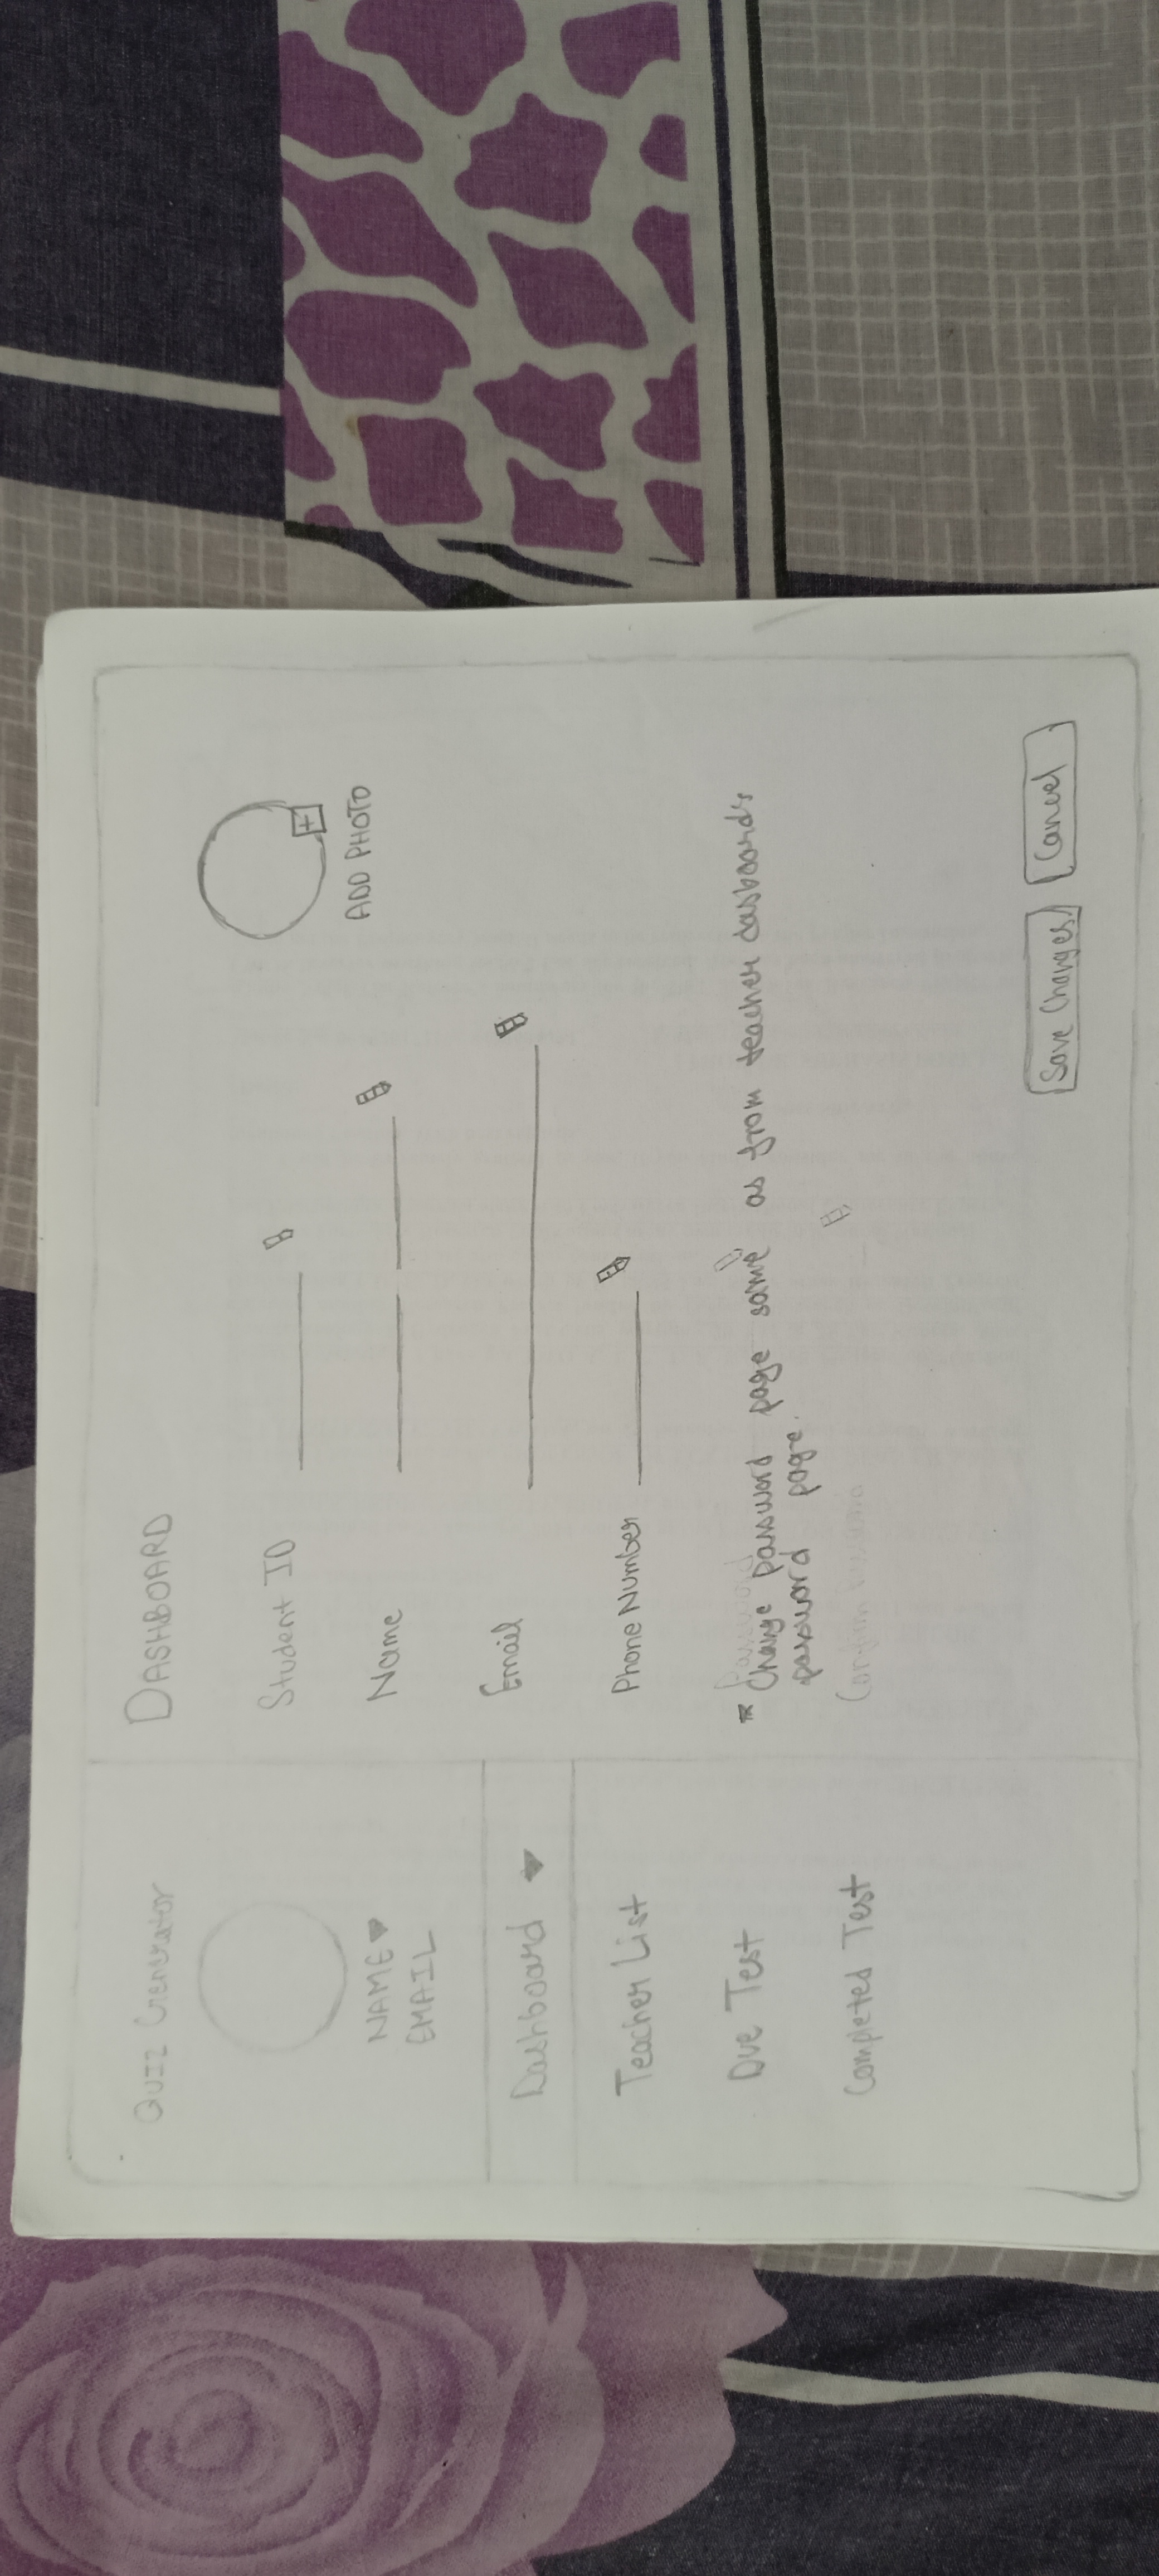 QUIZ Generator
NAME
EMAIL
Dashboard
Teacher List
Due Test
Completed Test
DASHBOARD
Student ID
Name
Email
Phone Number
ADD PHOTO
Password
* Change password page same as from teacher dasboard's
password page.
Save Changes
Cancel